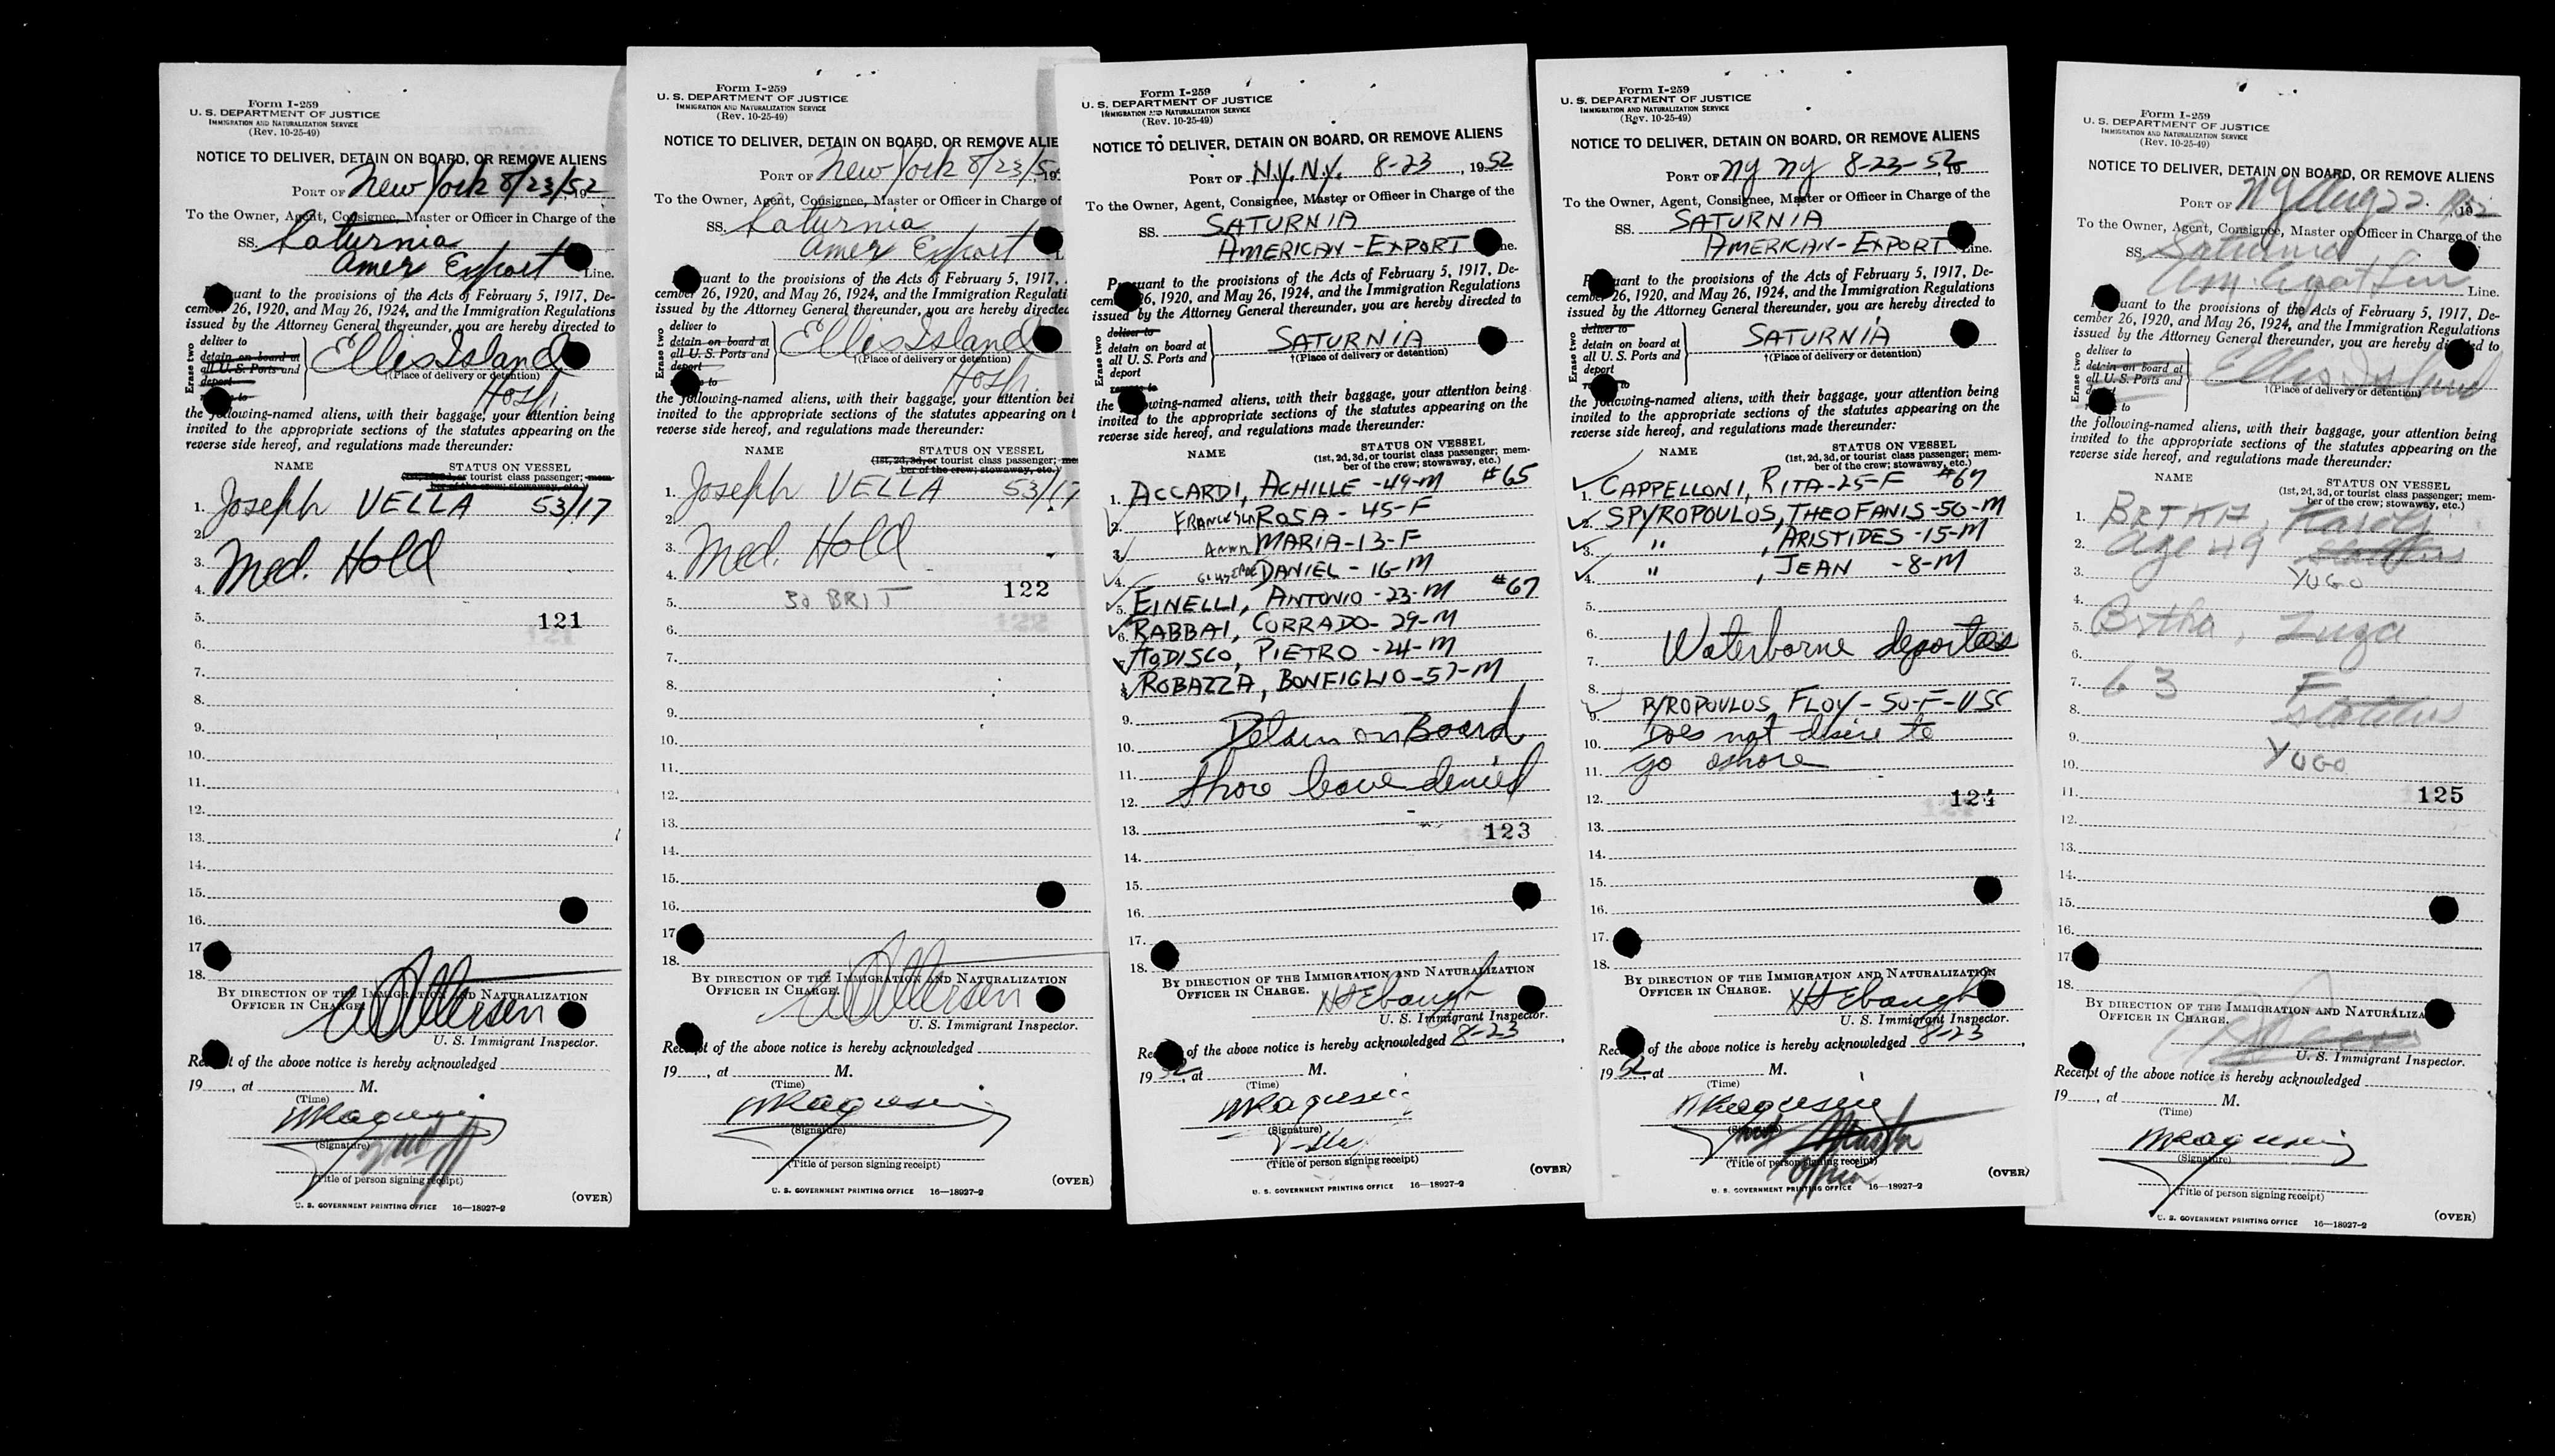 Form I-259
U. S. DEPARTMENT OF JUSTICE
IMMIGRATION AND NATURALIZATION SERVICE
(Rev. 10-25-49)
NOTICE TO DELIVER, DETAIN ON BOARD, OR REMOVE ALIENS
PORT OF New York 8/23/52, 19
To the Owner, Agent, Consignee, Master or Officer in Charge of the
SS. Saturnia
Amer Export Line.
uant to the provisions of the Acts of February 5, 1917, De-
cember 26, 1920, and May 26, 1924, and the Immigration Regulations
issued by the Attorney General thereunder, you are hereby directed to
Erase two
deliver to
detain on board at
all U. S. Ports and
deport
to
Ellis Island
†(Place of delivery or detention)
Hosp.
the following-named aliens, with their baggage, your attention being
invited to the appropriate sections of the statutes appearing on the
reverse side hereof, and regulations made thereunder:
NAME STATUS ON VESSEL
(1st, 2d, 3d, or tourist class passenger; mem-
ber of the crew; stowaway, etc.)
1. Joseph VELLA 53/17
2.
3. Med. Hold
4.
5. 121
6.
7.
8.
9.
10.
11.
12.
13.
14.
15.
16.
17.
18.
BY DIRECTION OF THE IMMIGRATION AND NATURALIZATION
OFFICER IN CHARGE.
U. S. Immigrant Inspector.
Receipt of the above notice is hereby acknowledged
19 , at M.
(Time)
(Signature)
(Title of person signing receipt)
(OVER)
U. S. GOVERNMENT PRINTING OFFICE 16—18927-2
Form I-259
U. S. DEPARTMENT OF JUSTICE
IMMIGRATION AND NATURALIZATION SERVICE
(Rev. 10-25-49)
NOTICE TO DELIVER, DETAIN ON BOARD, OR REMOVE ALIE
PORT OF New York 8/23/5 , 19
To the Owner, Agent, Consignee, Master or Officer in Charge of
SS. Saturnia
Amer Export L
uant to the provisions of the Acts of February 5, 1917,
cember 26, 1920, and May 26, 1924, and the Immigration Regulati
issued by the Attorney General thereunder, you are hereby directed
Erase two
deliver to
detain on board at
all U. S. Ports and
deport
to
Ellis Island
†(Place of delivery or detention)
Hosp.
the following-named aliens, with their baggage, your attention bei
invited to the appropriate sections of the statutes appearing on t
reverse side hereof, and regulations made thereunder:
NAME STATUS ON VESSEL
(1st, 2d, 3d, or tourist class passenger; me
ber of the crew; stowaway, etc.)
1. Joseph VELLA 53/17
2.
3. Med. Hold
4. 122
5. 30 BRIT
6.
7.
8.
9.
10.
11.
12.
13.
14.
15.
16.
17
18.
BY DIRECTION OF THE IMMIGRATION AND NATURALIZATION
OFFICER IN CHARGE.
U. S. Immigrant Inspector.
Receipt of the above notice is hereby acknowledged
19 , at M.
(Time)
(Signature)
(Title of person signing receipt)
(OVER)
U. S. GOVERNMENT PRINTING OFFICE 16—18927-2
Form I-259
U. S. DEPARTMENT OF JUSTICE
IMMIGRATION AND NATURALIZATION SERVICE
(Rev. 10-25-49)
NOTICE TO DELIVER, DETAIN ON BOARD, OR REMOVE ALIENS
PORT OF N.Y. N.Y. 8-23 , 1952
To the Owner, Agent, Consignee, Master or Officer in Charge of the
SS. SATURNIA
AMERICAN-EXPORT ne.
Pursuant to the provisions of the Acts of February 5, 1917, De-
cember 26, 1920, and May 26, 1924, and the Immigration Regulations
issued by the Attorney General thereunder, you are hereby directed to
Erase two
deliver to
detain on board at
all U. S. Ports and
deport
remove to
SATURNIA
†(Place of delivery or detention)
the following-named aliens, with their baggage, your attention being
invited to the appropriate sections of the statutes appearing on the
reverse side hereof, and regulations made thereunder:
NAME STATUS ON VESSEL
(1st, 2d, 3d, or tourist class passenger; mem-
ber of the crew; stowaway, etc.)
1. ACCARDI, ACHILLE -49-M #65
2. ROSA - 45-F
3. MARIA-13-F
4. DANIEL - 16-M
5. EINELLI, ANTONIO -23-M #67
6. RABBAI, CORRADO- 29-M
7. AGDISCO, PIETRO -24-M
8. ROBAZZA, BONFIGLIO-57-M
9.
10. Detain on Board
11.
12. Shore leave denied
13. 123
14.
15.
16.
17.
18.
BY DIRECTION OF THE IMMIGRATION AND NATURALIZATION
OFFICER IN CHARGE. HS Ebaugh
U. S. Immigrant Inspector.
Receipt of the above notice is hereby acknowledged 8-23 ,
1952, at M.
(Time)
(Signature)
(Title of person signing receipt)
(OVER)
U. S. GOVERNMENT PRINTING OFFICE 16—18927-2
Form I-259
U. S. DEPARTMENT OF JUSTICE
IMMIGRATION AND NATURALIZATION SERVICE
(Rev. 10-25-49)
NOTICE TO DELIVER, DETAIN ON BOARD, OR REMOVE ALIENS
PORT OF ny ny 8-23-52, 19
To the Owner, Agent, Consignee, Master or Officer in Charge of the
SS. SATURNIA
AMERICAN-EXPORT Line.
uant to the provisions of the Acts of February 5, 1917, De-
cember 26, 1920, and May 26, 1924, and the Immigration Regulations
issued by the Attorney General thereunder, you are hereby directed to
Erase two
deliver to
detain on board at
all U. S. Ports and
deport
remove to
SATURNIA
†(Place of delivery or detention)
the following-named aliens, with their baggage, your attention being
invited to the appropriate sections of the statutes appearing on the
reverse side hereof, and regulations made thereunder:
NAME STATUS ON VESSEL
(1st, 2d, 3d, or tourist class passenger; mem-
ber of the crew; stowaway, etc.)
1. CAPPELLONI, RITA-25-F #67
2. SPYROPOULOS, THEOFANIS-50-M
3. " , ARISTIDES -15-M
4. " , JEAN -8-M
5.
6.
7. Waterborne deportees
8.
9. PYROPOULOS, FLOY - 50-F-USC
10. Does not desire to
11. go ashore
12. 124
13.
14.
15.
16.
17.
18.
BY DIRECTION OF THE IMMIGRATION AND NATURALIZATION
OFFICER IN CHARGE. HS Ebaugh
U. S. Immigrant Inspector.
Receipt of the above notice is hereby acknowledged 8-23 ,
1952, at M.
(Time)
(Signature)
(Title of person signing receipt)
(OVER)
U. S. GOVERNMENT PRINTING OFFICE 16—18927-2
Form I-259
U. S. DEPARTMENT OF JUSTICE
IMMIGRATION AND NATURALIZATION SERVICE
(Rev. 10-25-49)
NOTICE TO DELIVER, DETAIN ON BOARD, OR REMOVE ALIENS
PORT OF NY Aug 22. 1952
To the Owner, Agent, Consignee, Master or Officer in Charge of the
SS. Saturnia
Line.
uant to the provisions of the Acts of February 5, 1917, De-
cember 26, 1920, and May 26, 1924, and the Immigration Regulations
issued by the Attorney General thereunder, you are hereby directed to
Erase two
deliver to
detain on board at
all U. S. Ports and
to
Ellis Island
†(Place of delivery or detention)
the following-named aliens, with their baggage, your attention being
invited to the appropriate sections of the statutes appearing on the
reverse side hereof, and regulations made thereunder:
NAME STATUS ON VESSEL
(1st, 2d, 3d, or tourist class passenger; mem-
ber of the crew; stowaway, etc.)
1. BRTKA, Karolj
2. age 49
3. YUGO
4.
5. Brtka, Zuza
6.
7. 63 F
8. stateless
9.
10. YUGO
11. 125
12.
13.
14.
15.
16.
17.
18.
BY DIRECTION OF THE IMMIGRATION AND NATURALIZA
OFFICER IN CHARGE.
U. S. Immigrant Inspector.
Receipt of the above notice is hereby acknowledged
19 , at M.
(Time)
(Signature)
(Title of person signing receipt)
(OVER)
U. S. GOVERNMENT PRINTING OFFICE 16—18927-2